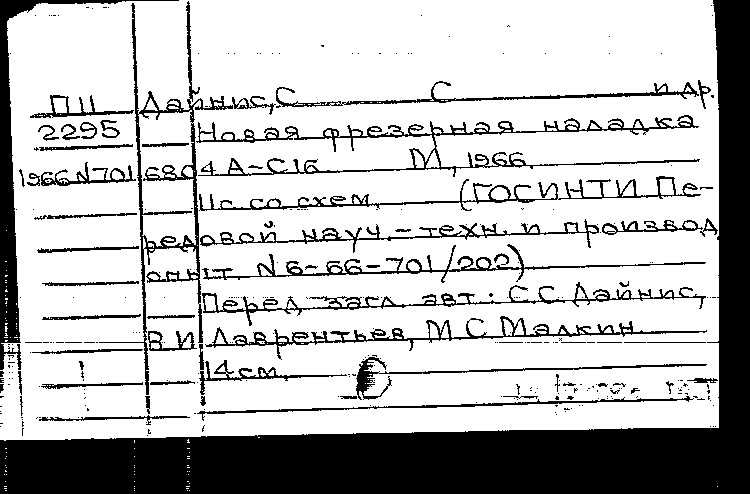 П11 Дайнис, С С и др.
2295 Новая фрезерная наладка
1966 N701 6804А-С16 М, 1966.
11с со схем. (ГОСИНТИ Пе-
редовой науч.-техн. и производ
опыт. N6-66-701/202)
Перед загл. авт.: С.С. Дайнис,
В.И Лаврентьев, М С Малкин
14 см.